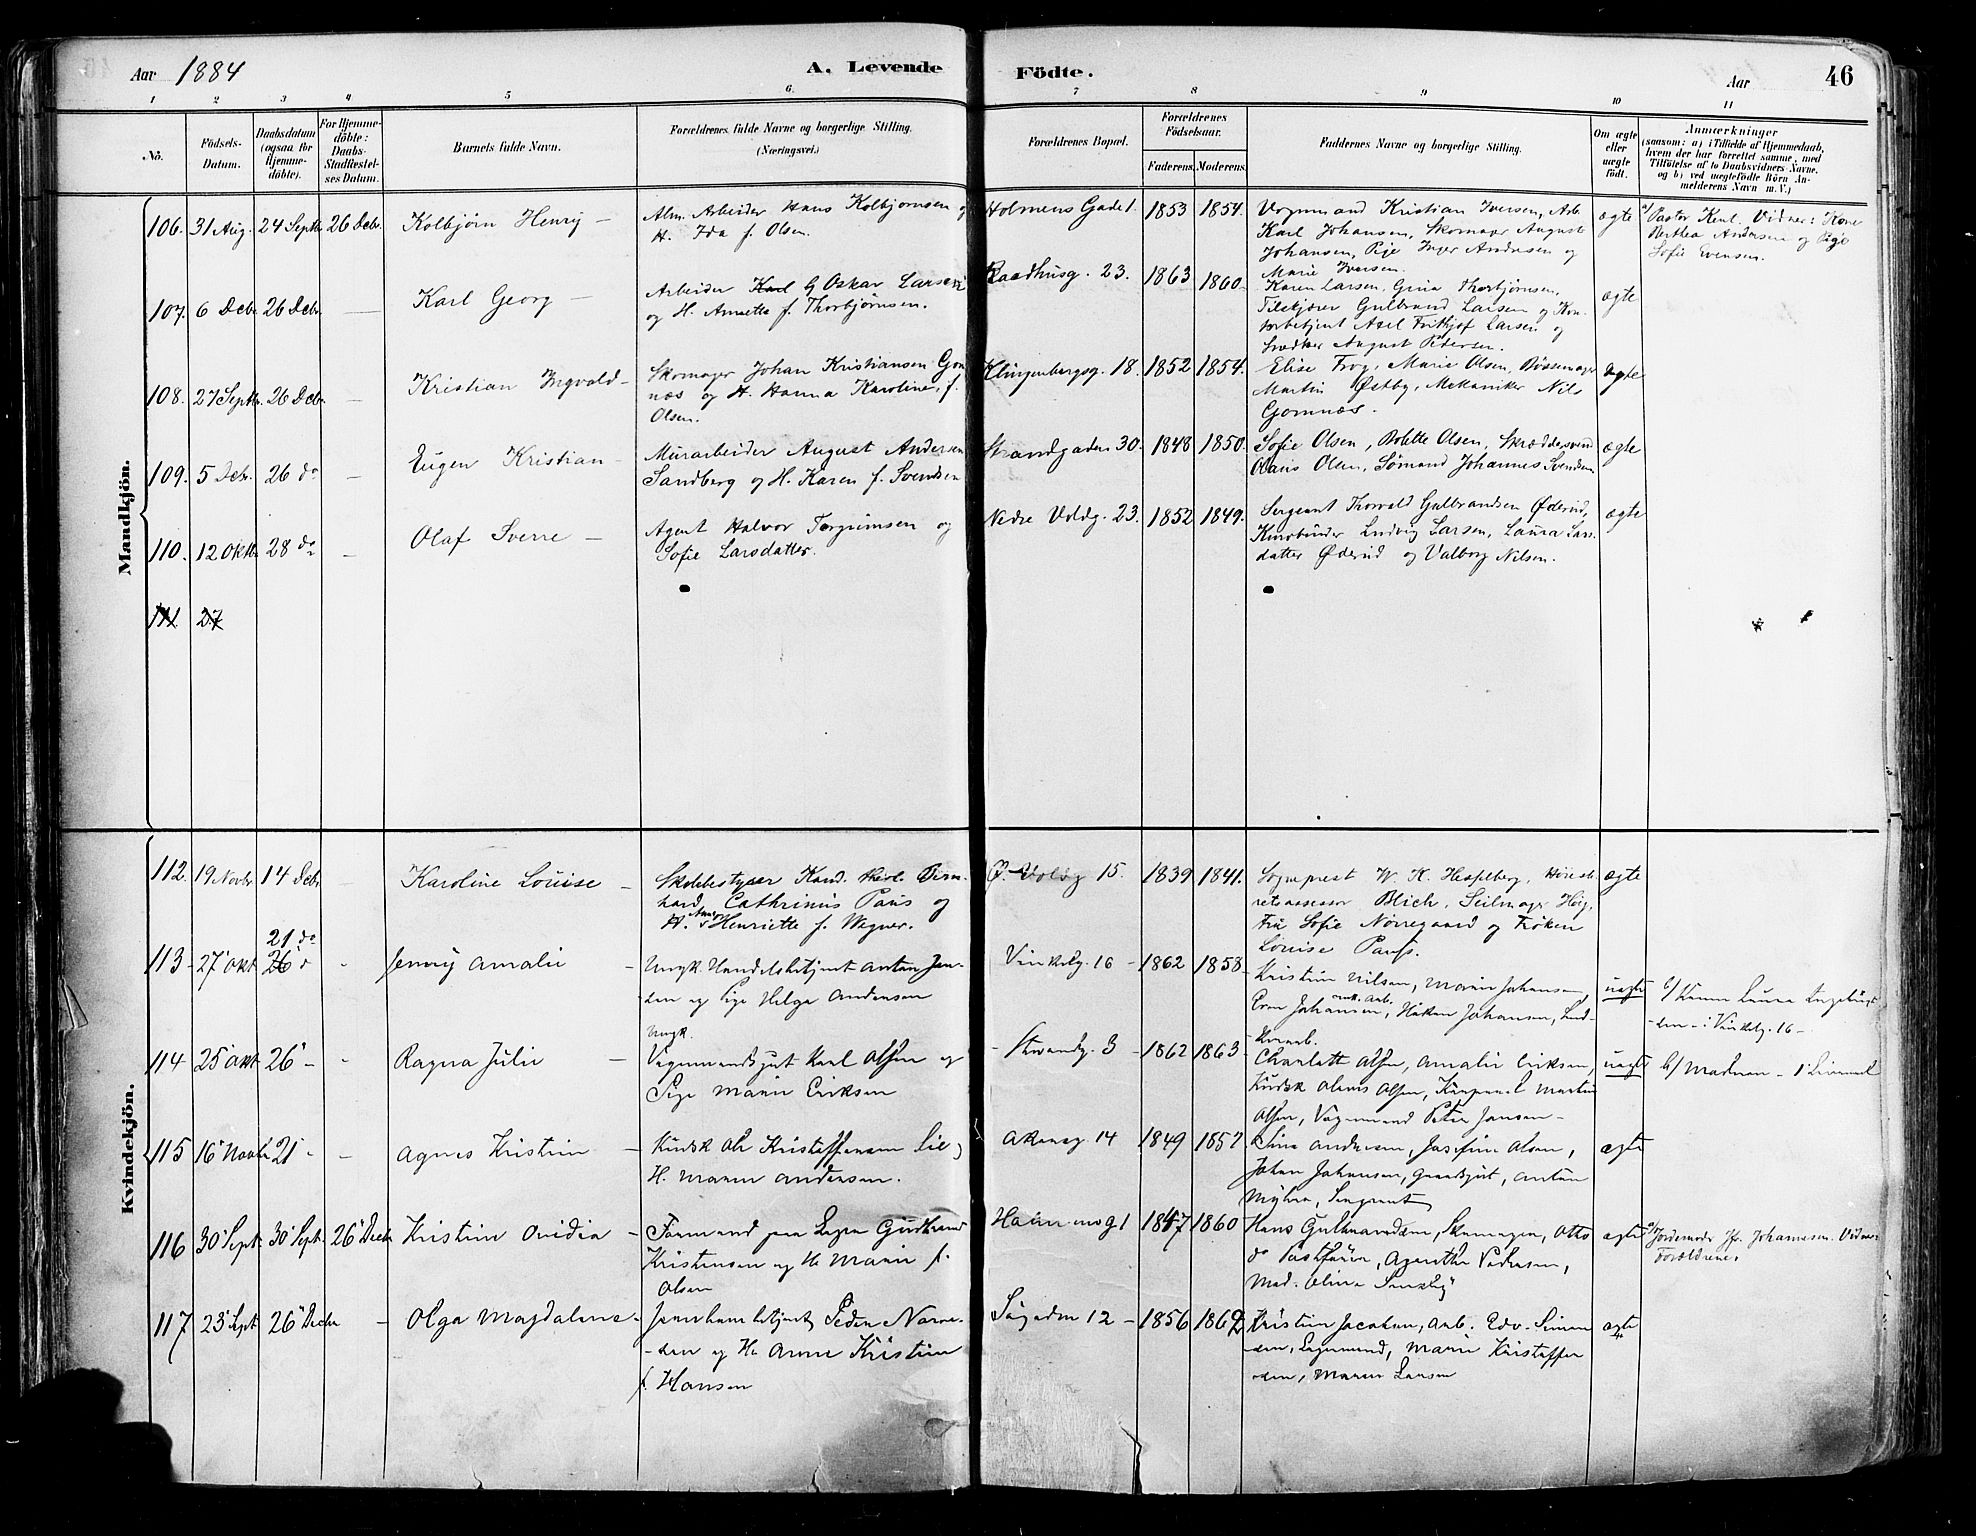 Aar 1884
A. Levende Födte.
Aar
46
1 2 3 4 5 6. 7 8 9 10 11
No.
Födsels-Datum.
Daabsdatum (ogsaa for Hjemme-döbte).
For Hjemme-döbte: Daabs-Stadfæstel-ses Datum.
Barnets fulde Navn.
Forældrenes fulde Navne og borgerlige Stilling. (Næringsvei.)
Forældrenes Bopæl.
Forældrenes Födselsaar.
Faderens. Moderens.
Faddernes Navne og borgerlige Stilling.
Om ægte eller uægte födt.
Anmærkninger
(saasom: a) i Tilfælde af Hjemmedaab, hvem der har forrettet samme, med Tilföielse af to Daabsvidners Navne, og b) ved uægtefödte Börn An-melderens Navn m. V.)
Mandkjön.
106. 31 Aug. 24 Septbr. 26 Decbr. Kolbjørn Henrij —
Alm. Arbeider Hans Kolbjørnsen og
H. Ida f. Olsen.
Holmens Gade 1. 1853 1854.
Vognmand Kristian Iversen, Arb.
Karl Johansen, Skomager August
Johansen, Pige Inger Andresen og
Marie Iversen.
ægte
a) Pastor Kent. Vidner: Kone
Berthea Andersen og Pige
Sofie Evensen.
107. 6 Decbr. 26 Decbr. — Karl Georg —
Arbeider Karl G Oskar Larsen
og H. Annette f. Thorbjørnsen.
Raadhusg. 23. 1863 1860.
Karen Larsen, Grina Thorbjørnsen,
Tilskjærer Gulbrand Larsen og Kon-
torbetjent Axel Frithjof Larsen og
Snedker August Pedersen.
ægte
108. 27 Septbr. 26 Decbr. — Kristian Ingvald —
Skomager Johan Kristiansen Gom
næs og H. Hanna Karoline, f.
Olsen.
Klingenbergsg. 18. 1852 1854.
Elise Frog, Marie Olsen, Bøssemager
Martin Østby, Mekaniker Nils
Gomnæs.
ægte
109. 5 Decbr. 26 do — Eugen Kristian —
Murarbeider August Andersen
Sandberg og H. Karen f. Svendsen
Strandgaden 30. 1848 1850.
Sofie Olsen, Bolette Olsen, Skræddersvend
Olaus Olsen, Sømand Johannes Svendsen
ægte
110. 12 Oktbr. 28 do — Olaf Sverre —
Agent Halvor Torgrimsen og
Sofie Larsdatter.
Nedre Voldg. 23. 1852 1849.
Sergeant Thorvald Gulbrandsen Øderud,
Ludvig Larsen, Laura Lars
datter Øderud og Valborg Nilsen.
ægte
111. 27
Kvindekjön.
112. 19 Novbr. 14 Decbr. — Karoline Louise —
Skolebestyrer Kand. theol. Bern
hard Cathrinus Paus og
H. Anna Henriette f. Wegner.
Ø. Voldg 15. 1839 1841.
Sogneprest W. K. Hesselberg, Høieste
retsassessor Blich, Seilmager Høg,
Fru Sofie Nørregaard og Frøken
Louise Paus.
ægte
113 27 okt 21 do 26 d - Jenny Amalie —
Ungk. Handelsbetjent Anton Jen-
sen og Pige Helga Andersen
Vinkelg. 16 — 1862 1858
Kristine Nilsen, Marie Johansen,
Johansen, Håkon Johansen,
uægte
b) Laura
— i Vinkelg. 16 —
114 25 okt 26 — - Ragna Julie —
Ungk.
Vognmandsgut Karl Olsen og
Pige Marie Eriksen
— Strandg. 3 — 1862 1863
Charlotte Olsen, Amalie Eriksen,
Kudsk Olaus Olsen, Martin
Olsen, Vognmand Peter Jensen —
uægte
b) Madmor —
115 16 Novbr 21 - — Agnes Kristine —
Kudsk Ole Kristoffersen Lie
H. Maren Andersen.
Akersg 14 1849 1857
Stina Andersen, Josefine Olsen,
Johan Johansen, Gaardsgut, Anton
Myhra, Sergeant
ægte
116 30 Sept 30 Sept. 26 Decbr Kristine Ovidia —
Formand paa Gudbrand
Kristensen og H. Marie f.
Olsen
1847 1860
Hans Gulbrandsen, Skomager, Otto
do Postfører, Agnethe Pedersen,
Mad. Oline
ægte
a) Jordemoder Jfr. Johannesen. Vidner
Forældrene.
117 23 Sept. 26 Decbr — Olga Magdalene —
Jernbanebetjent Peder
sen og H. Anne Kristine
f. Hansen
Søgaden 12 — 1856 1862
Kristine Jacobsen, Arb. Edv. Simen
sen, Marie Kristoffer
sen, Maren Larsen
ægte